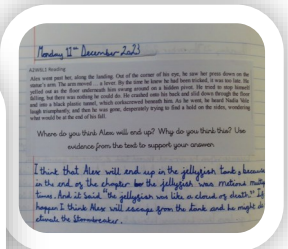 Monday 11th December 2023
Alex went past her, along the landing. Out of the corner of his eye, he saw her press down on the
statue's arm. The arm moved ... a lever. By the time he knew he had been tricked, it was too late. He
yelled out as the floor underneath him swung around on a hidden pivot. He tried to stop himself
falling, but there was nothing he could do. He crashed onto his back and slid down through the floor
and into a black plastic tunnel, which corkscrewed beneath him. As he went, he heard Nadia Vole
laugh triumphantly, and then he was gone, desperately trying to find a hold on the sides, wondering
what would be at the end of his fall.
Where do you think Alex will end up? Why do you think this? Use
evidence from the text to support your answer
I think that Alex will end up in the jellyfish tank because
in the end of the chapter the jellyfish was metiond
times. And it said "the jellyfish was like a cloud of death."
happen I think Alex will escape from the tank and he might
the Stormbreaker.